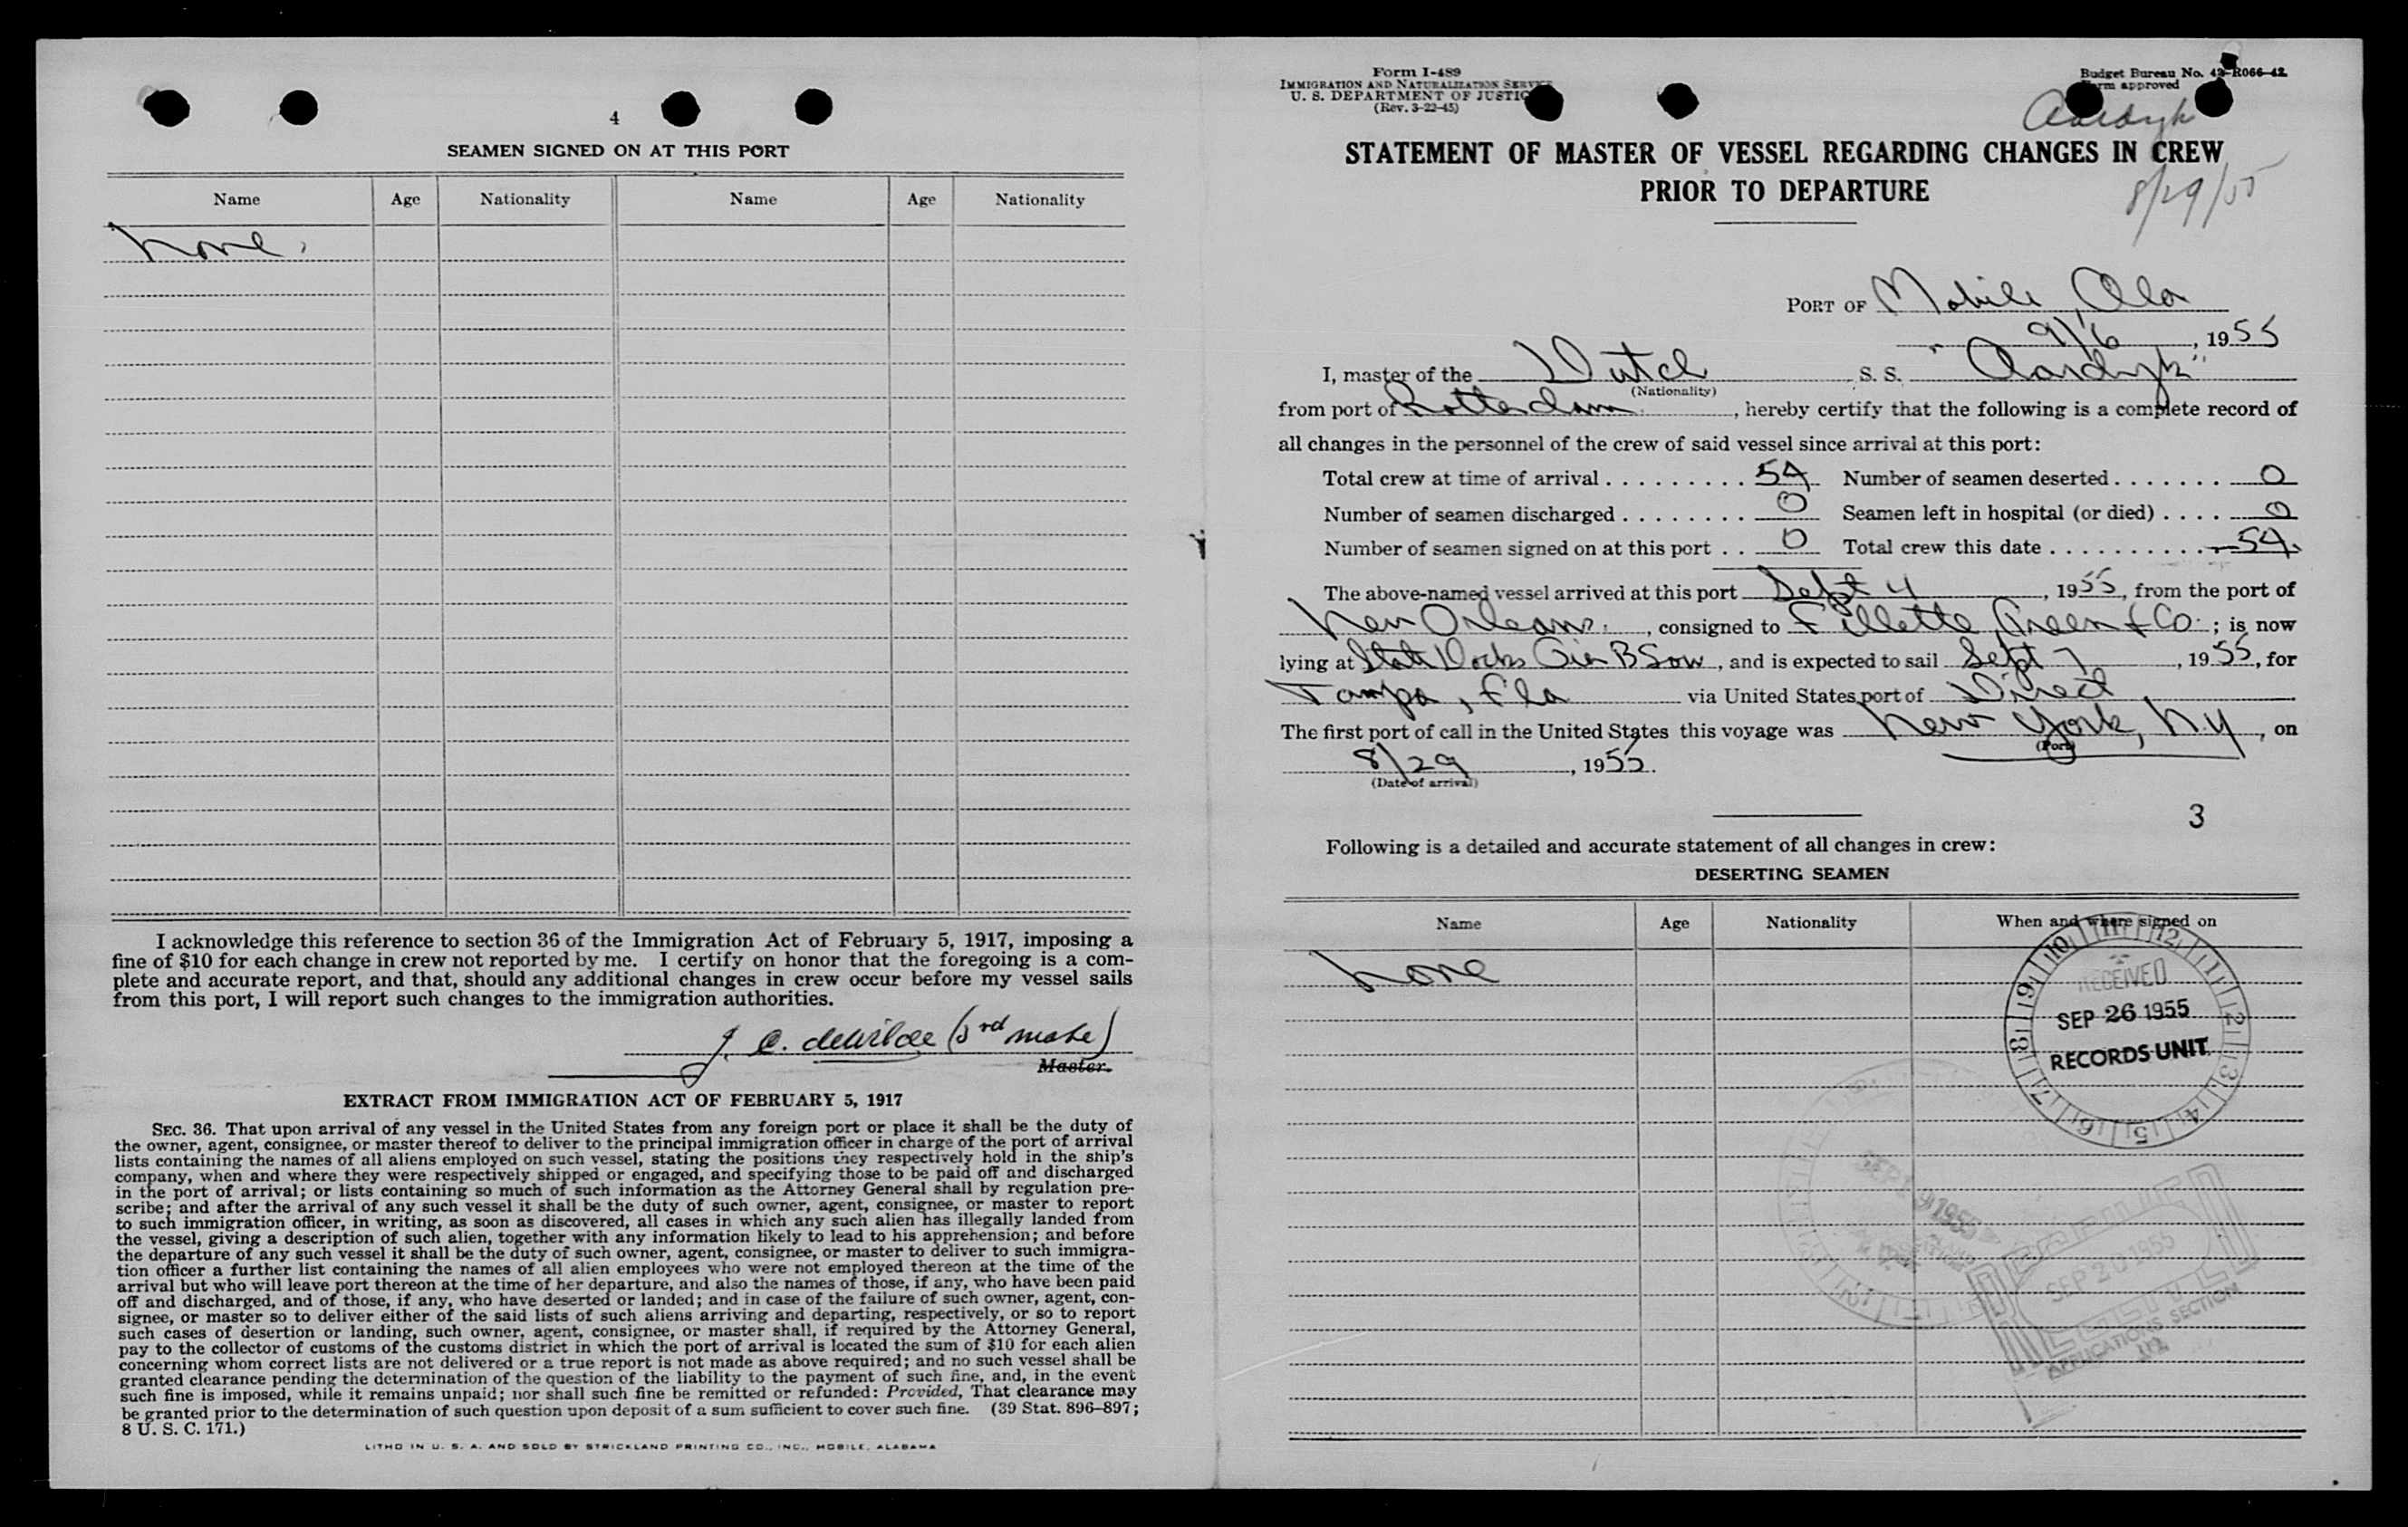 4
SEAMEN SIGNED ON AT THIS PORT
Name Age Nationality Name Age Nationality
None.
I acknowledge this reference to section 36 of the Immigration Act of February 5, 1917, imposing a
fine of $10 for each change in crew not reported by me. I certify on honor that the foregoing is a com-
plete and accurate report, and that, should any additional changes in crew occur before my vessel sails
from this port, I will report such changes to the immigration authorities.
J. C. deWilde (3rd mate)
Master.
EXTRACT FROM IMMIGRATION ACT OF FEBRUARY 5, 1917
SEC. 36. That upon arrival of any vessel in the United States from any foreign port or place it shall be the duty of
the owner, agent, consignee, or master thereof to deliver to the principal immigration officer in charge of the port of arrival
lists containing the names of all aliens employed on such vessel, stating the positions they respectively hold in the ship's
company, when and where they were respectively shipped or engaged, and specifying those to be paid off and discharged
in the port of arrival; or lists containing so much of such information as the Attorney General shall by regulation pre-
scribe; and after the arrival of any such vessel it shall be the duty of such owner, agent, consignee, or master to report
to such immigration officer, in writing, as soon as discovered, all cases in which any such alien has illegally landed from
the vessel, giving a description of such alien, together with any information likely to lead to his apprehension; and before
the departure of any such vessel it shall be the duty of such owner, agent, consignee, or master to deliver to such immigra-
tion officer a further list containing the names of all alien employees who were not employed thereon at the time of the
arrival but who will leave port thereon at the time of her departure, and also the names of those, if any, who have been paid
off and discharged, and of those, if any, who have deserted or landed; and in case of the failure of such owner, agent, con-
signee, or master so to deliver either of the said lists of such aliens arriving and departing, respectively, or so to report
such cases of desertion or landing, such owner, agent, consignee, or master shall, if required by the Attorney General,
pay to the collector of customs of the customs district in which the port of arrival is located the sum of $10 for each alien
concerning whom correct lists are not delivered or a true report is not made as above required; and no such vessel shall be
granted clearance pending the determination of the question of the liability to the payment of such fine, and, in the event
such fine is imposed, while it remains unpaid; nor shall such fine be remitted or refunded: Provided, That clearance may
be granted prior to the determination of such question upon deposit of a sum sufficient to cover such fine. (39 Stat. 896–897;
8 U. S. C. 171.)
LITHO IN U. S. A. AND SOLD BY STRICKLAND PRINTING CO., INC., MOBILE, ALABAMA
Form I-489
IMMIGRATION AND NATURALIZATION SERVICE
U. S. DEPARTMENT OF JUSTICE
(Rev. 3-22-45)
Budget Bureau No. 43-R066-42
Form approved
Aardyk
STATEMENT OF MASTER OF VESSEL REGARDING CHANGES IN CREW
PRIOR TO DEPARTURE
8/29/55
PORT OF Mobile, Ala
9/6, 1955
I, master of the Dutch S. S. "Aardyk"
(Nationality)
from port of Rotterdam, hereby certify that the following is a complete record of
all changes in the personnel of the crew of said vessel since arrival at this port:
Total crew at time of arrival 54 Number of seamen deserted 0
Number of seamen discharged 0 Seamen left in hospital (or died) 0
Number of seamen signed on at this port 0 Total crew this date 54
The above-named vessel arrived at this port Sept 4, 1955, from the port of
New Orleans, consigned to Fillette Green & Co.; is now
lying at State Docks Pier B Sow, and is expected to sail Sept 7, 1955, for
Tampa, Fla via United States port of Direct
The first port of call in the United States this voyage was New York, N.Y, on
(Port)
8/29, 1955.
(Date of arrival)
3
Following is a detailed and accurate statement of all changes in crew:
DESERTING SEAMEN
Name Age Nationality When and where signed on
None
RECEIVED
SEP 26 1955
RECORDS UNIT
SEP 19 1955
RECEIVED
SEP 20 1955
APPLICATIONS SECTION